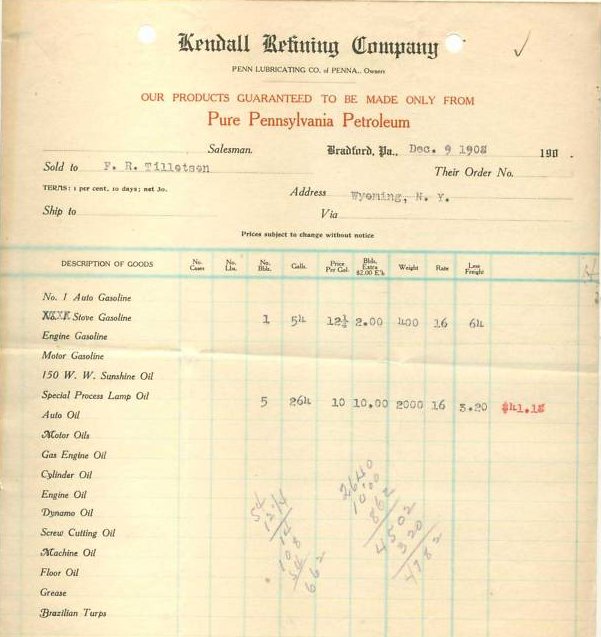 Kendall Refining Company
PENN LUBRICATING CO. of PENNA., Owners
OUR PRODUCTS GUARANTEED TO BE MADE ONLY FROM
Pure Pennsylvania Petroleum
Salesman. Bradford, Pa., Dec. 9 1908 190 .
Sold to F. R. Tillotson Their Order No.
TERMS: 1 per cent. 10 days; net 30. Address Wyoming, N. Y.
Ship to Via
Prices subject to change without notice
DESCRIPTION OF GOODS No. Cases No. Lbs. No. Bbls. Galls. Price Per Gal. Bbls. Extra $2.00 E'h Weight Rate Less Freight
No. 1 Auto Gasoline
Stove Gasoline 1 54 12½ 2.00 400 16 64
Engine Gasoline
Motor Gasoline
150 W. W. Sunshine Oil
Special Process Lamp Oil 5 264 10 10.00 2000 16 3.20 $41.18
Auto Oil
Motor Oils
Gas Engine Oil
Cylinder Oil
Engine Oil
Dynamo Oil
Screw Cutting Oil
Machine Oil
Floor Oil
Grease
Brazilian Turps
54
12¼
14
108
54
662
2640
1000
862
4502
320
4782